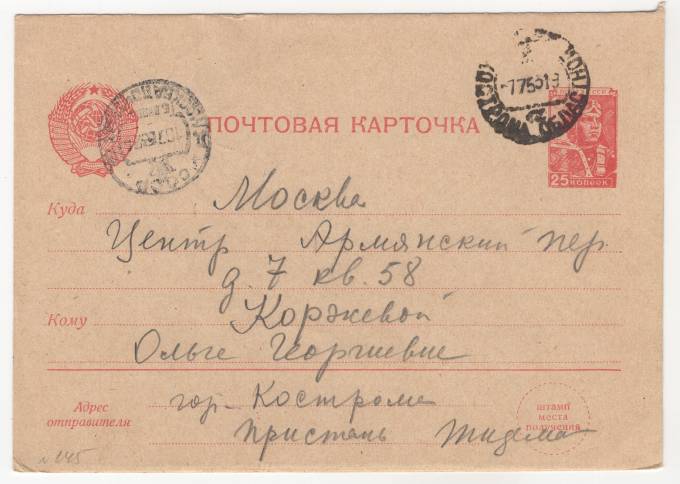 ПОЧТОВАЯ КАРТОЧКА
25 КОПЕЕК
Куда Москва
Центр Армянский пер.
д. 7 кв. 58
Кому Коржевой
Ольге Георгиевне
Адрес отправителя гор. Кострома
Пристань
штамп
места
получения